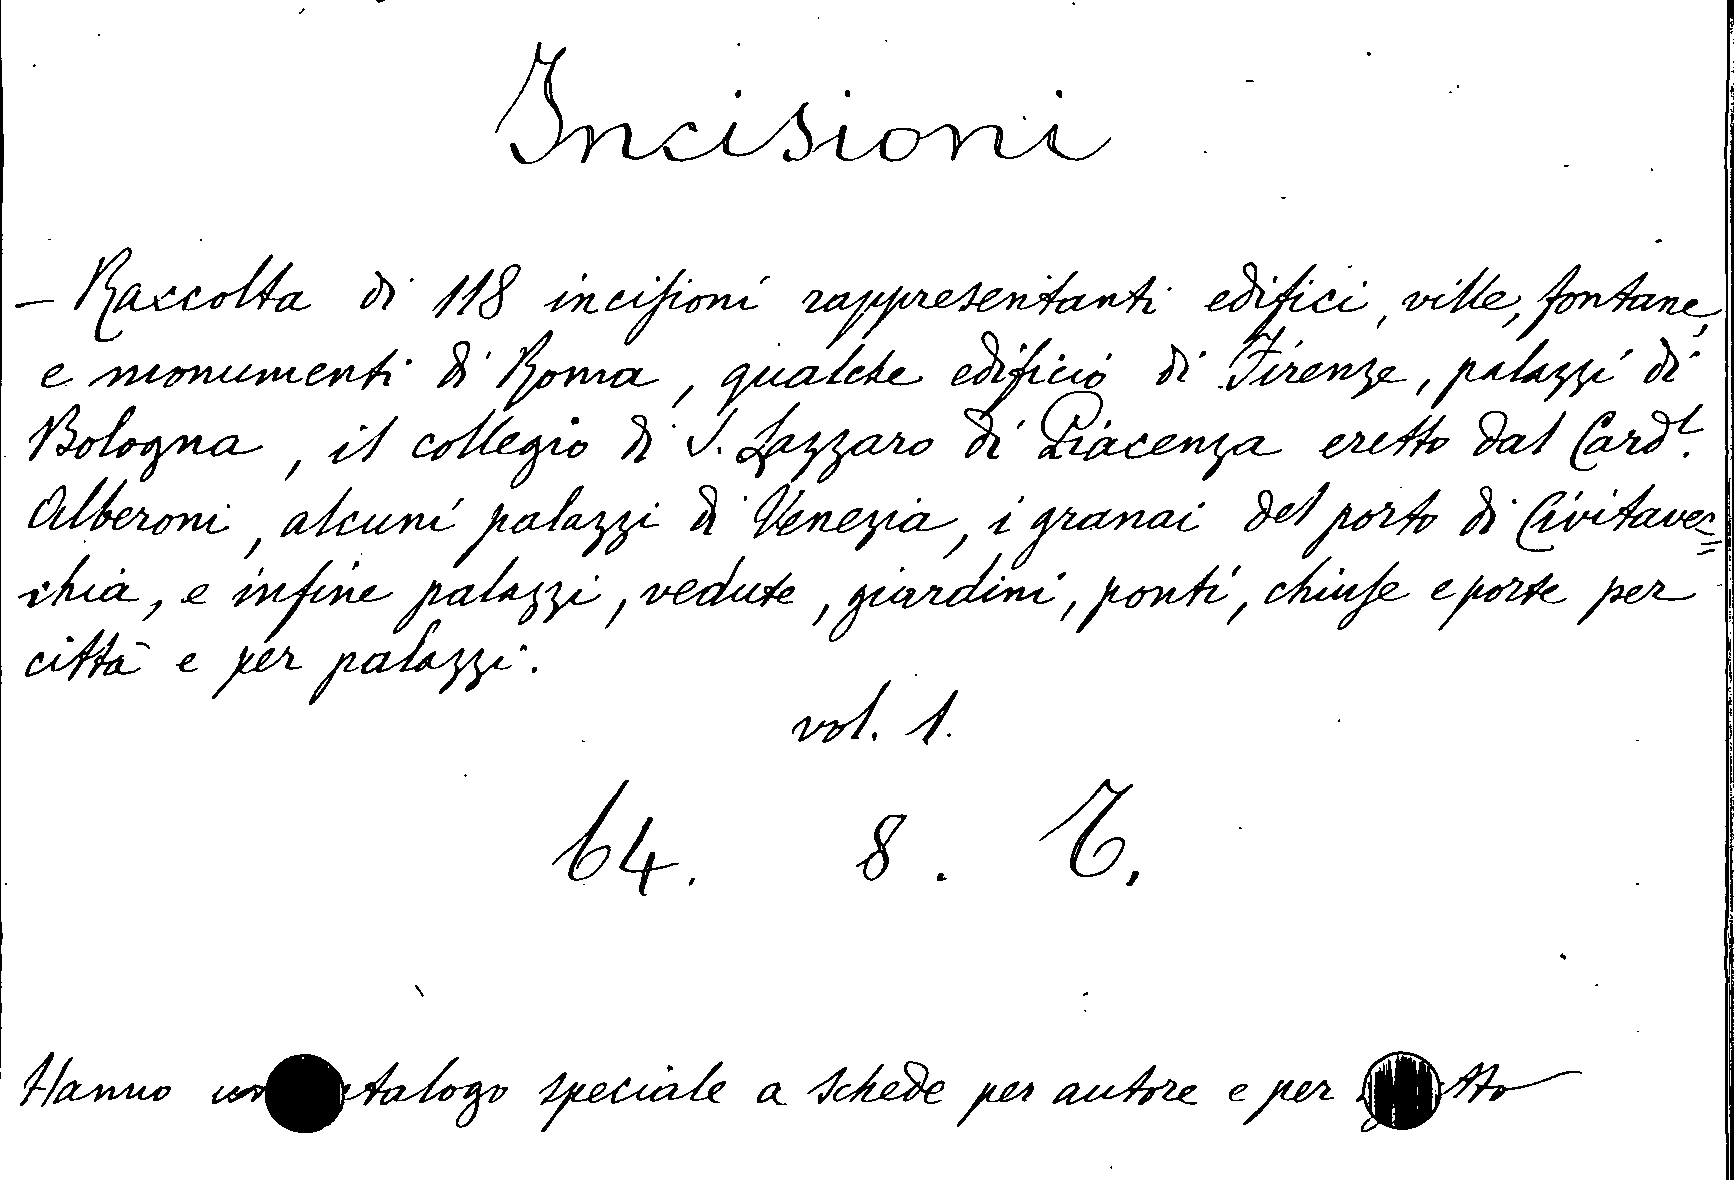 Incisioni
— Raccolta di 118 incisioni rappresentanti edifici, ville, fontane,
e monumenti di Roma, qualche edificio di Firenze, palazzi di
Bologna, il collegio di S. Lazzaro di Piacenza eretto dal Card.l
Alberoni, alcuni palazzi di Venezia, i granai del porto di Civitavec=
chia, e infine palazzi, vedute, giardini, ponti, chiuse e porte per
città e per palazzi.
vol. 1.
64. 8. T.
Hanno speciale a schede per autore e per